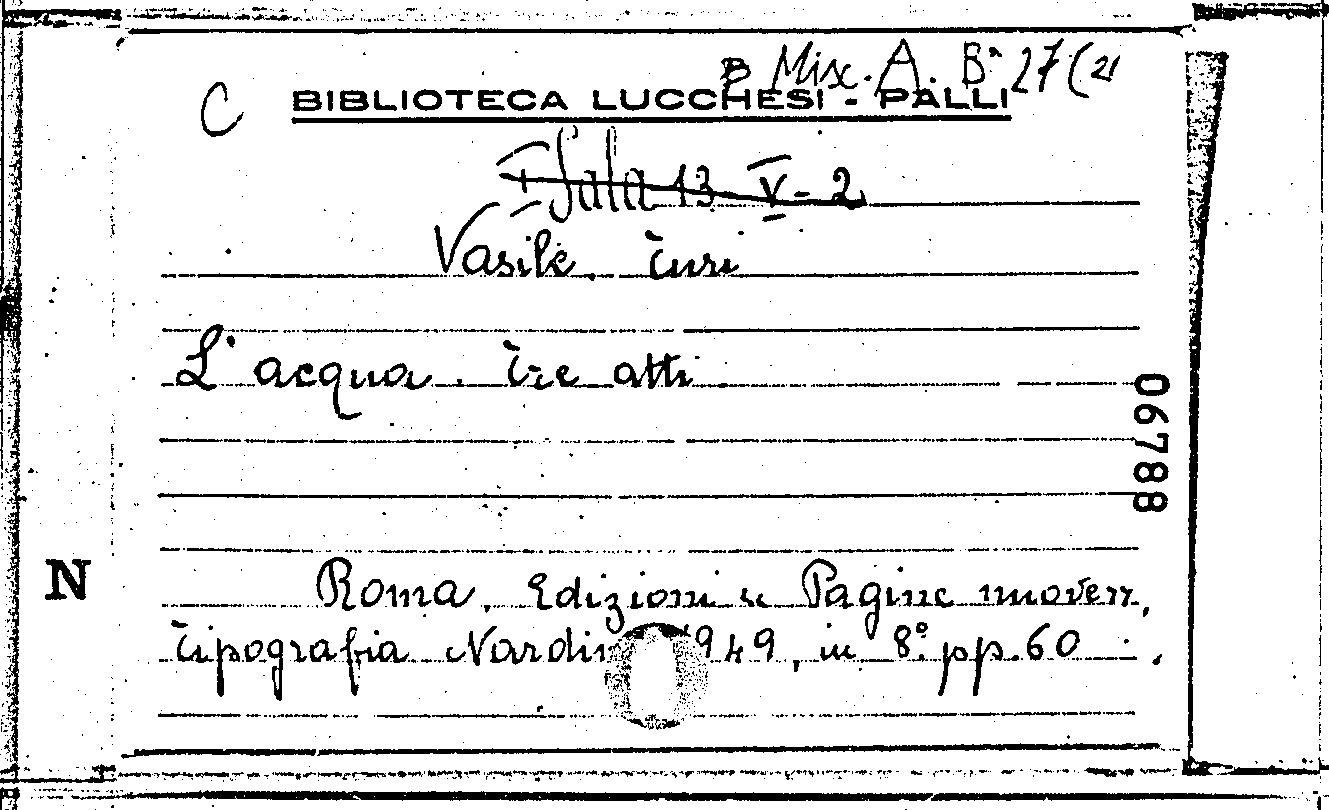 B Misc. A. B. 27(2)
C BIBLIOTECA LUCCHESI - PALLI
I Sala 13 V - 2
Vasile, Turi
L'acqua. Tre atti
06788
N
Roma, Edizioni "Pagine nuove",
Tipografia Nardin 1949, in 8° pp. 60.